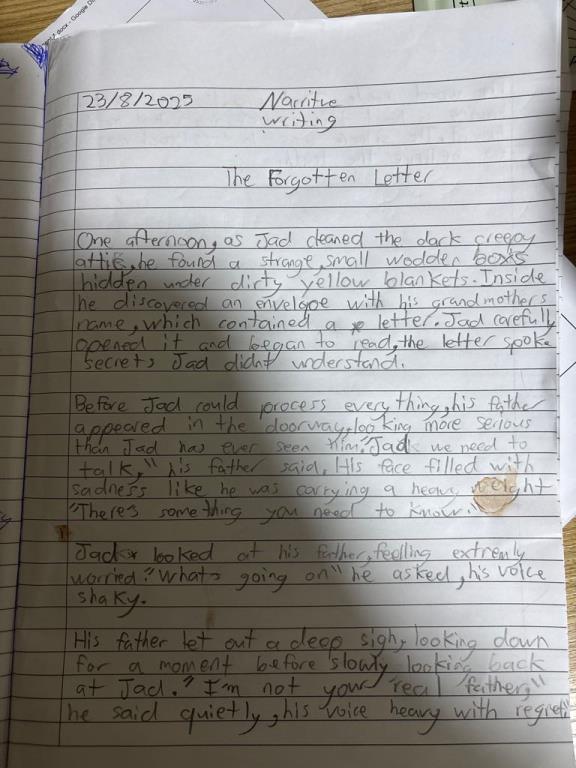 t.docx - Google Do
23/8/2025 Narritve
writing
The Forgotten Letter
One afternoon, as Jad cleaned the dark creepy
attic, he found a strange, small wodden boxs
hidden under dirty yellow blankets. Inside
he discovered an envelgoe with his grandmothers
name, which contained a letter. Jad carefully
opened it and began to read, the letter spoke
secrets Jad didnt understand.
Before Jad could process everything, his father
appeared in the doorway, looking more serious
than Jad has ever seen him. "Jad we need to
talk," his father said, His face filled with
sadness like he was carrying a heavy weight
"There's something you need to know."
Jad looked at his father, feelling extremly
worried. "Whats going on" he asked, his voice
shaky.
His father let out a deep sigh, looking down
for a moment before slowly looking back
at Jad. "I'm not your "real father,"
he said quietly, his voice heavy with regret.